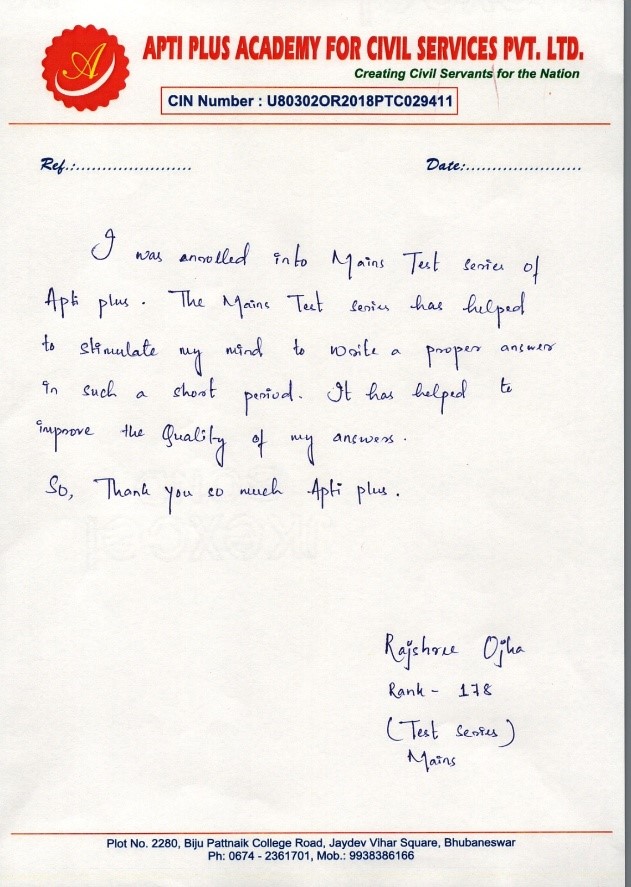 A
APTI PLUS ACADEMY FOR CIVIL SERVICES PVT. LTD.
Creating Civil Servants for the Nation
CIN Number : U80302OR2018PTC029411
Ref.:...................... Date:......................
I was enrolled into Mains Test series of
Apti plus. The Mains Test series has helped
to stimulate my mind to write a proper answer
in such a short period. It has helped to
improve the Quality of my answers.
So, Thank you so much Apti plus.
Rajshree Ojha
Rank - 178
(Test series)
Mains
Plot No. 2280, Biju Pattnaik College Road, Jaydev Vihar Square, Bhubaneswar
Ph: 0674 - 2361701, Mob.: 9938386166